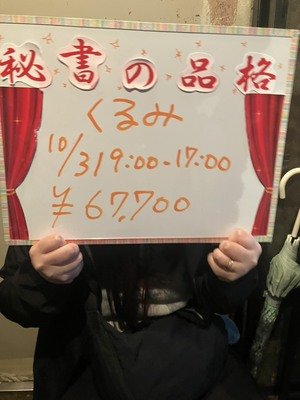 秘書の品格
くるみ
10/31 9:00-17:00
¥67,700